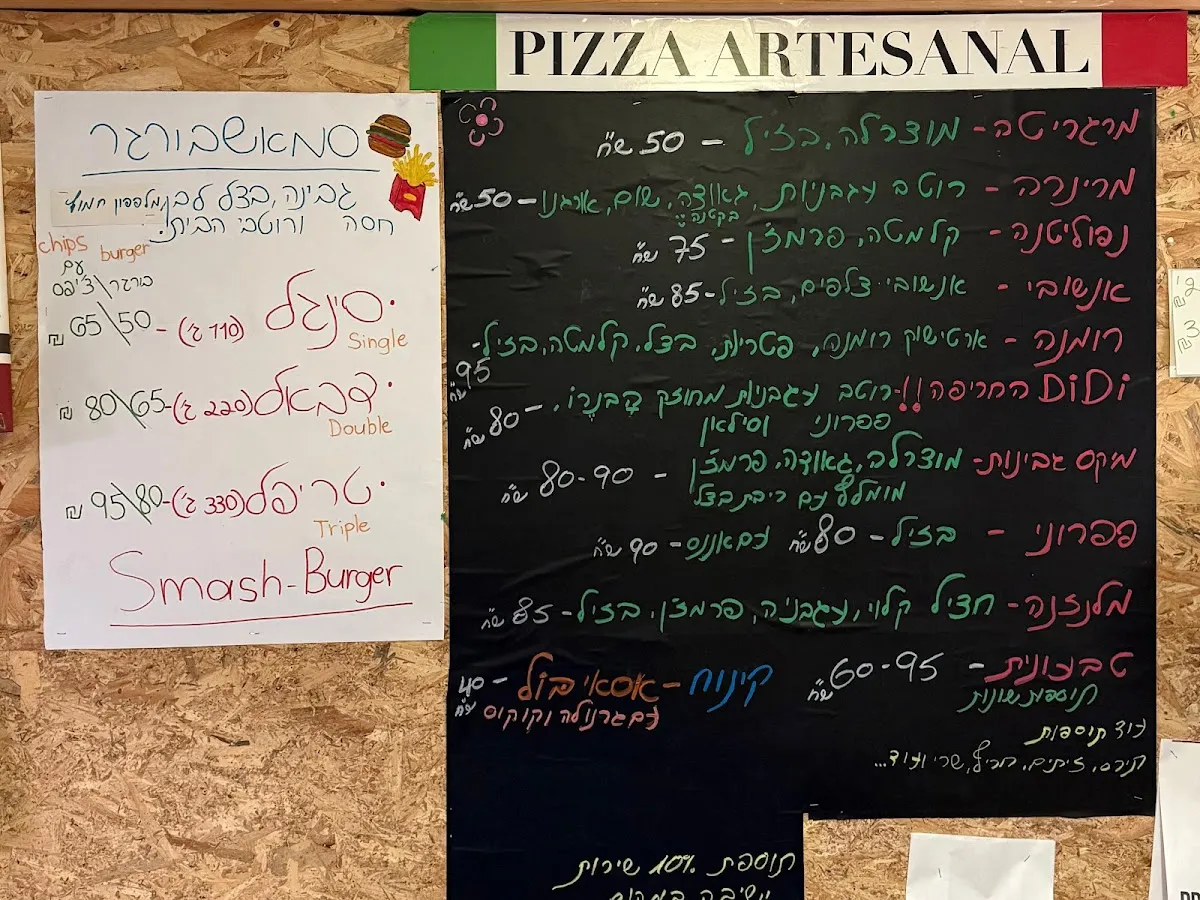 PIZZA ARTESANAL
מרגריטה - מוצרלה, בזיל - 50 ש"ח
מרינרה - רוטב עגבניות, גאודה, שום, אורגנו - 50 ש"ח
בקטנה
נפוליטנה - קלמטה, פרמז'ן - 75 ש"ח
אנשובי - אנשובי צלפים, בזיל - 85 ש"ח
רומנה - ארטישוק רומנה, פטריות, בצל, קלמטה, בזיל -
95 ש"ח
DiDi החריפה!! - רוטב עגבניות מחוזק הבנרו, - 80 ש"ח
פפרוני וסילאן
מיקס גבינות - מוצרלה, גאודה, פרמז'ן - 80-90 ש"ח
מומלץ עם ריבת בצל
פפרוני - בזיל - 80 ש"ח עם אננס - 90 ש"ח
מלנזנה - חציל קלוי, עגבניה, פרמז'ן, בזיל - 85 ש"ח
טבעונית - 60-95 ש"ח
תוספות שונות
קינוח - אסאי בול - 40 ש"ח
עם גרנולה וקוקוס
עוד תוספות
תירס, זיתים, חריף, שרי ועוד...
תוספת 10% שירות
סמאשבורגר
גבינה, בצל לבן, מלפפון חמוץ
חסה ורוטבי הבית.
chips burger
עם
בורגר\צ'יפס
סינגל (110 ג') - 50\65 ₪
Single
דבאל (220 ג') - 65\80 ₪
Double
טריפל (330 ג') - 80\95 ₪
Triple
Smash-Burger